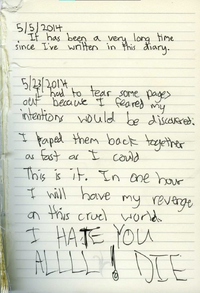 5/5/2014
It has been a very long time
since I've written in this diary.
5/23/2014
I had to tear some pages
out because I feared my
intentions would be discovered.
I taped them back together
as fast as I could
This is it. In one hour
I will have my revenge
on this cruel world
I HATE YOU
ALLLL! DIE